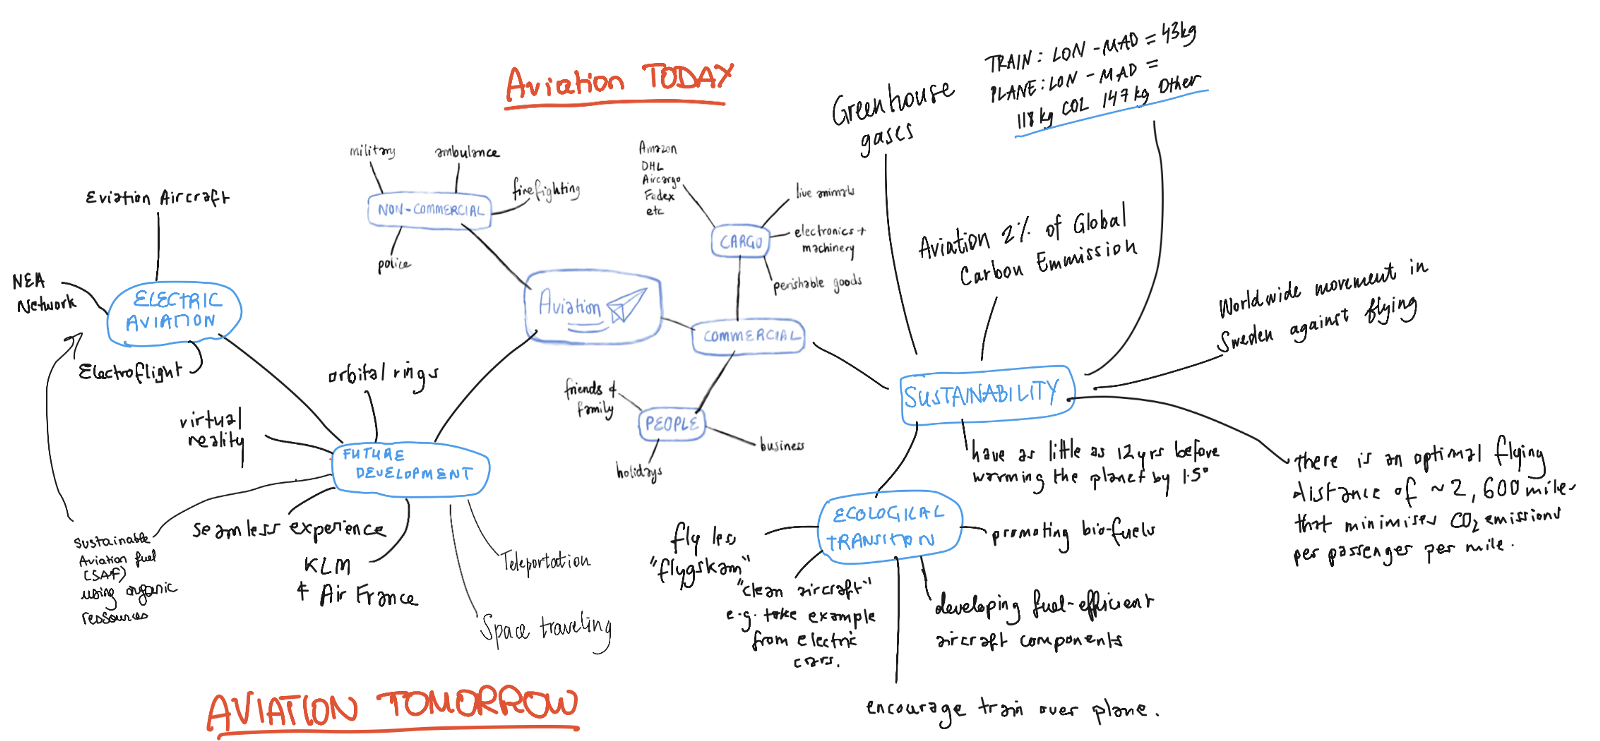 Aviation TODAY
military
ambulance
firefighting
NON-COMMERCIAL
police
Aviation
Amazon
DHL
Aircargo
Fedex
etc
live animals
CARGO
electronics +
machinery
perishable goods
COMMERCIAL
friends &
family
PEOPLE
business
holidays
Greenhouse
gases
TRAIN: LON - MAD = 43kg
PLANE: LON - MAD =
118 kg CO2 147 kg Other
Aviation 2% of Global
Carbon Emmission
Worldwide movement in
Sweden against flying
SUSTAINABILITY
have as little as 12 yrs before
warming the planet by 1.5°
there is an optimal flying
distance of ~2,600 miles
that minimises CO2 emissions
per passenger per mile.
ECOLOGICAL
TRANSITION
promoting bio-fuels
fly less
"flygskam"
"clean aircraft"
e.g. take example
from electric
cars.
developing fuel-efficient
aircraft components
encourage train over plane.
Eviation Aircraft
NEA
Network
ELECTRIC
AVIATION
Electroflight
orbital rings
virtual
reality
FUTURE
DEVELOPMENT
seamless experience
KLM
& Air France
Sustainable
Aviation fuel
(SAF)
using organic
ressources
Teleportation
Space traveling
AVIATION TOMORROW